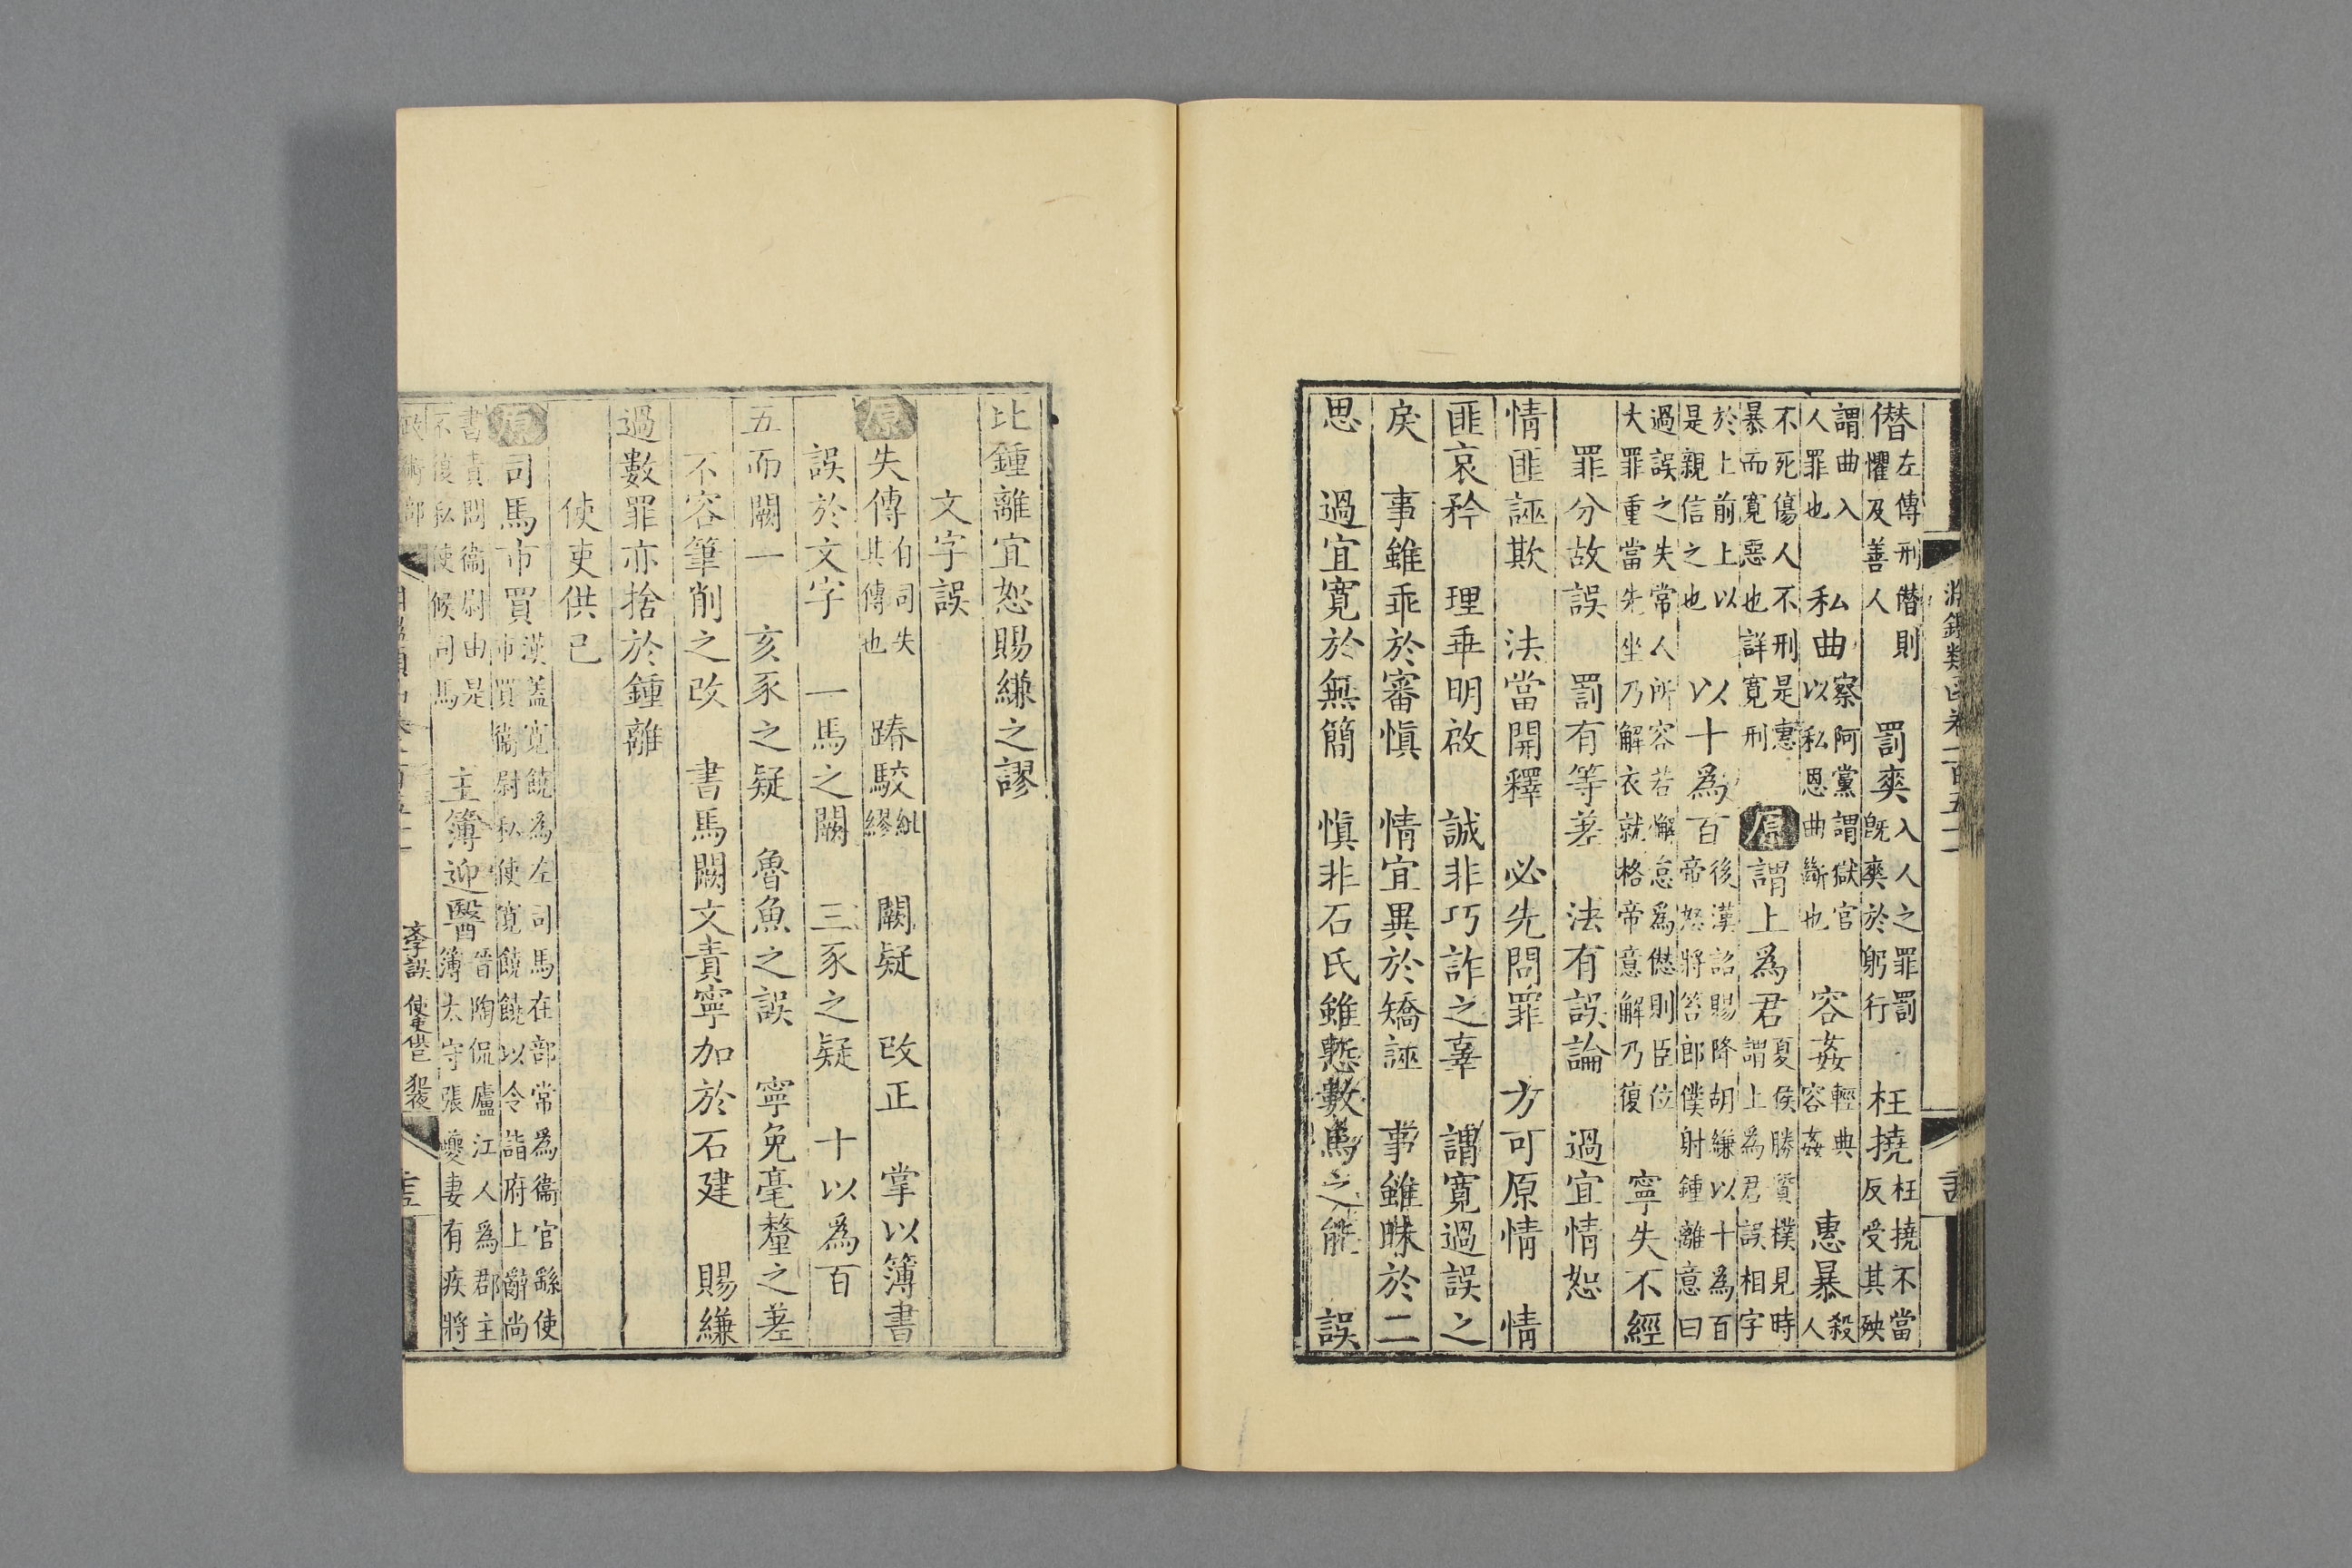 淵鑑類函卷一百五十
僭左傳刑僭則懼及善人　罰爽入人之罪罰既爽於躬行　枉撓枉撓不當反受其殃
謂曲入人罪也　私曲察阿黨謂獄官以私恩曲斷也　容姦輕典容姦　惠暴殺人
不死傷人不刑是惠暴而寬惡也詳寬刑　原謂上爲君夏侯勝質樸見時謂上爲君誤相字
於上前上以是親信之也　以十爲百後漢詔賜降胡縑以十爲百帝怒將笞郎僕射鍾離意曰
過誤之失常人所容若懈怠爲愆則臣位大罪重當先坐乃解衣就格帝意解乃復　寧失不經
罪分故誤　罰有等差　法有誤論　過宜情恕
情匪誣欺　法當開釋　必先問罪　方可原情　情
匪哀矜　理乖明啟　誠非巧詐之辜　謂寬過誤之
戾　事雖乖於審愼　情宜異於矯誣　事雖昧於二
思　過宜寬於無簡　愼非石氏雖愆數馬之能　誤
比鍾離宜恕賜縑之謬
文字誤
原失傳有司失其傳也　踳駮紕繆　闕疑　改正　掌以簿書
誤於文字　一馬之闕　三豕之疑　十以爲百
五而闕一　亥豕之疑　魯魚之誤　寧免毫釐之差
不容筆削之改　書馬闕文責寧加於石建　賜縑
過數罪亦捨於鍾離
使吏供己
原司馬市買漢蓋寬饒爲左司馬在部常爲衞官繇使市買衞尉私使寬饒饒以令詣府上辭尚
書責問衞尉由是不復私使候司馬　主簿迎醫晉陶侃廬江人爲郡主簿太守張夔妻有疾將
文字誤　使吏供己　犯夜